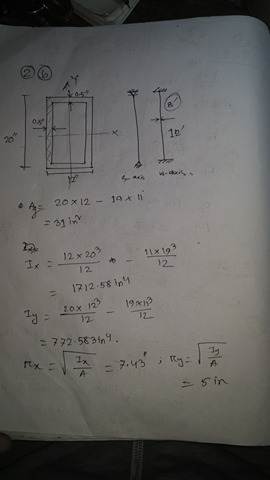 ② ⑥
Y
0.5"
0.5"
X
20"
12"
B'
18'
x-axis
y-axis
Ag = 20 x 12 - 19 x 11
= 31 in²
Ix = 12 x 20³/12 - 11 x 19³/12
= 1712.58 in⁴
Iy = 20 x 12³/12 - 19 x 11³/12
= 772.583 in⁴.
rx = √(Ix/A) = 7.43" ; ry = √(Iy/A)
= 5 in